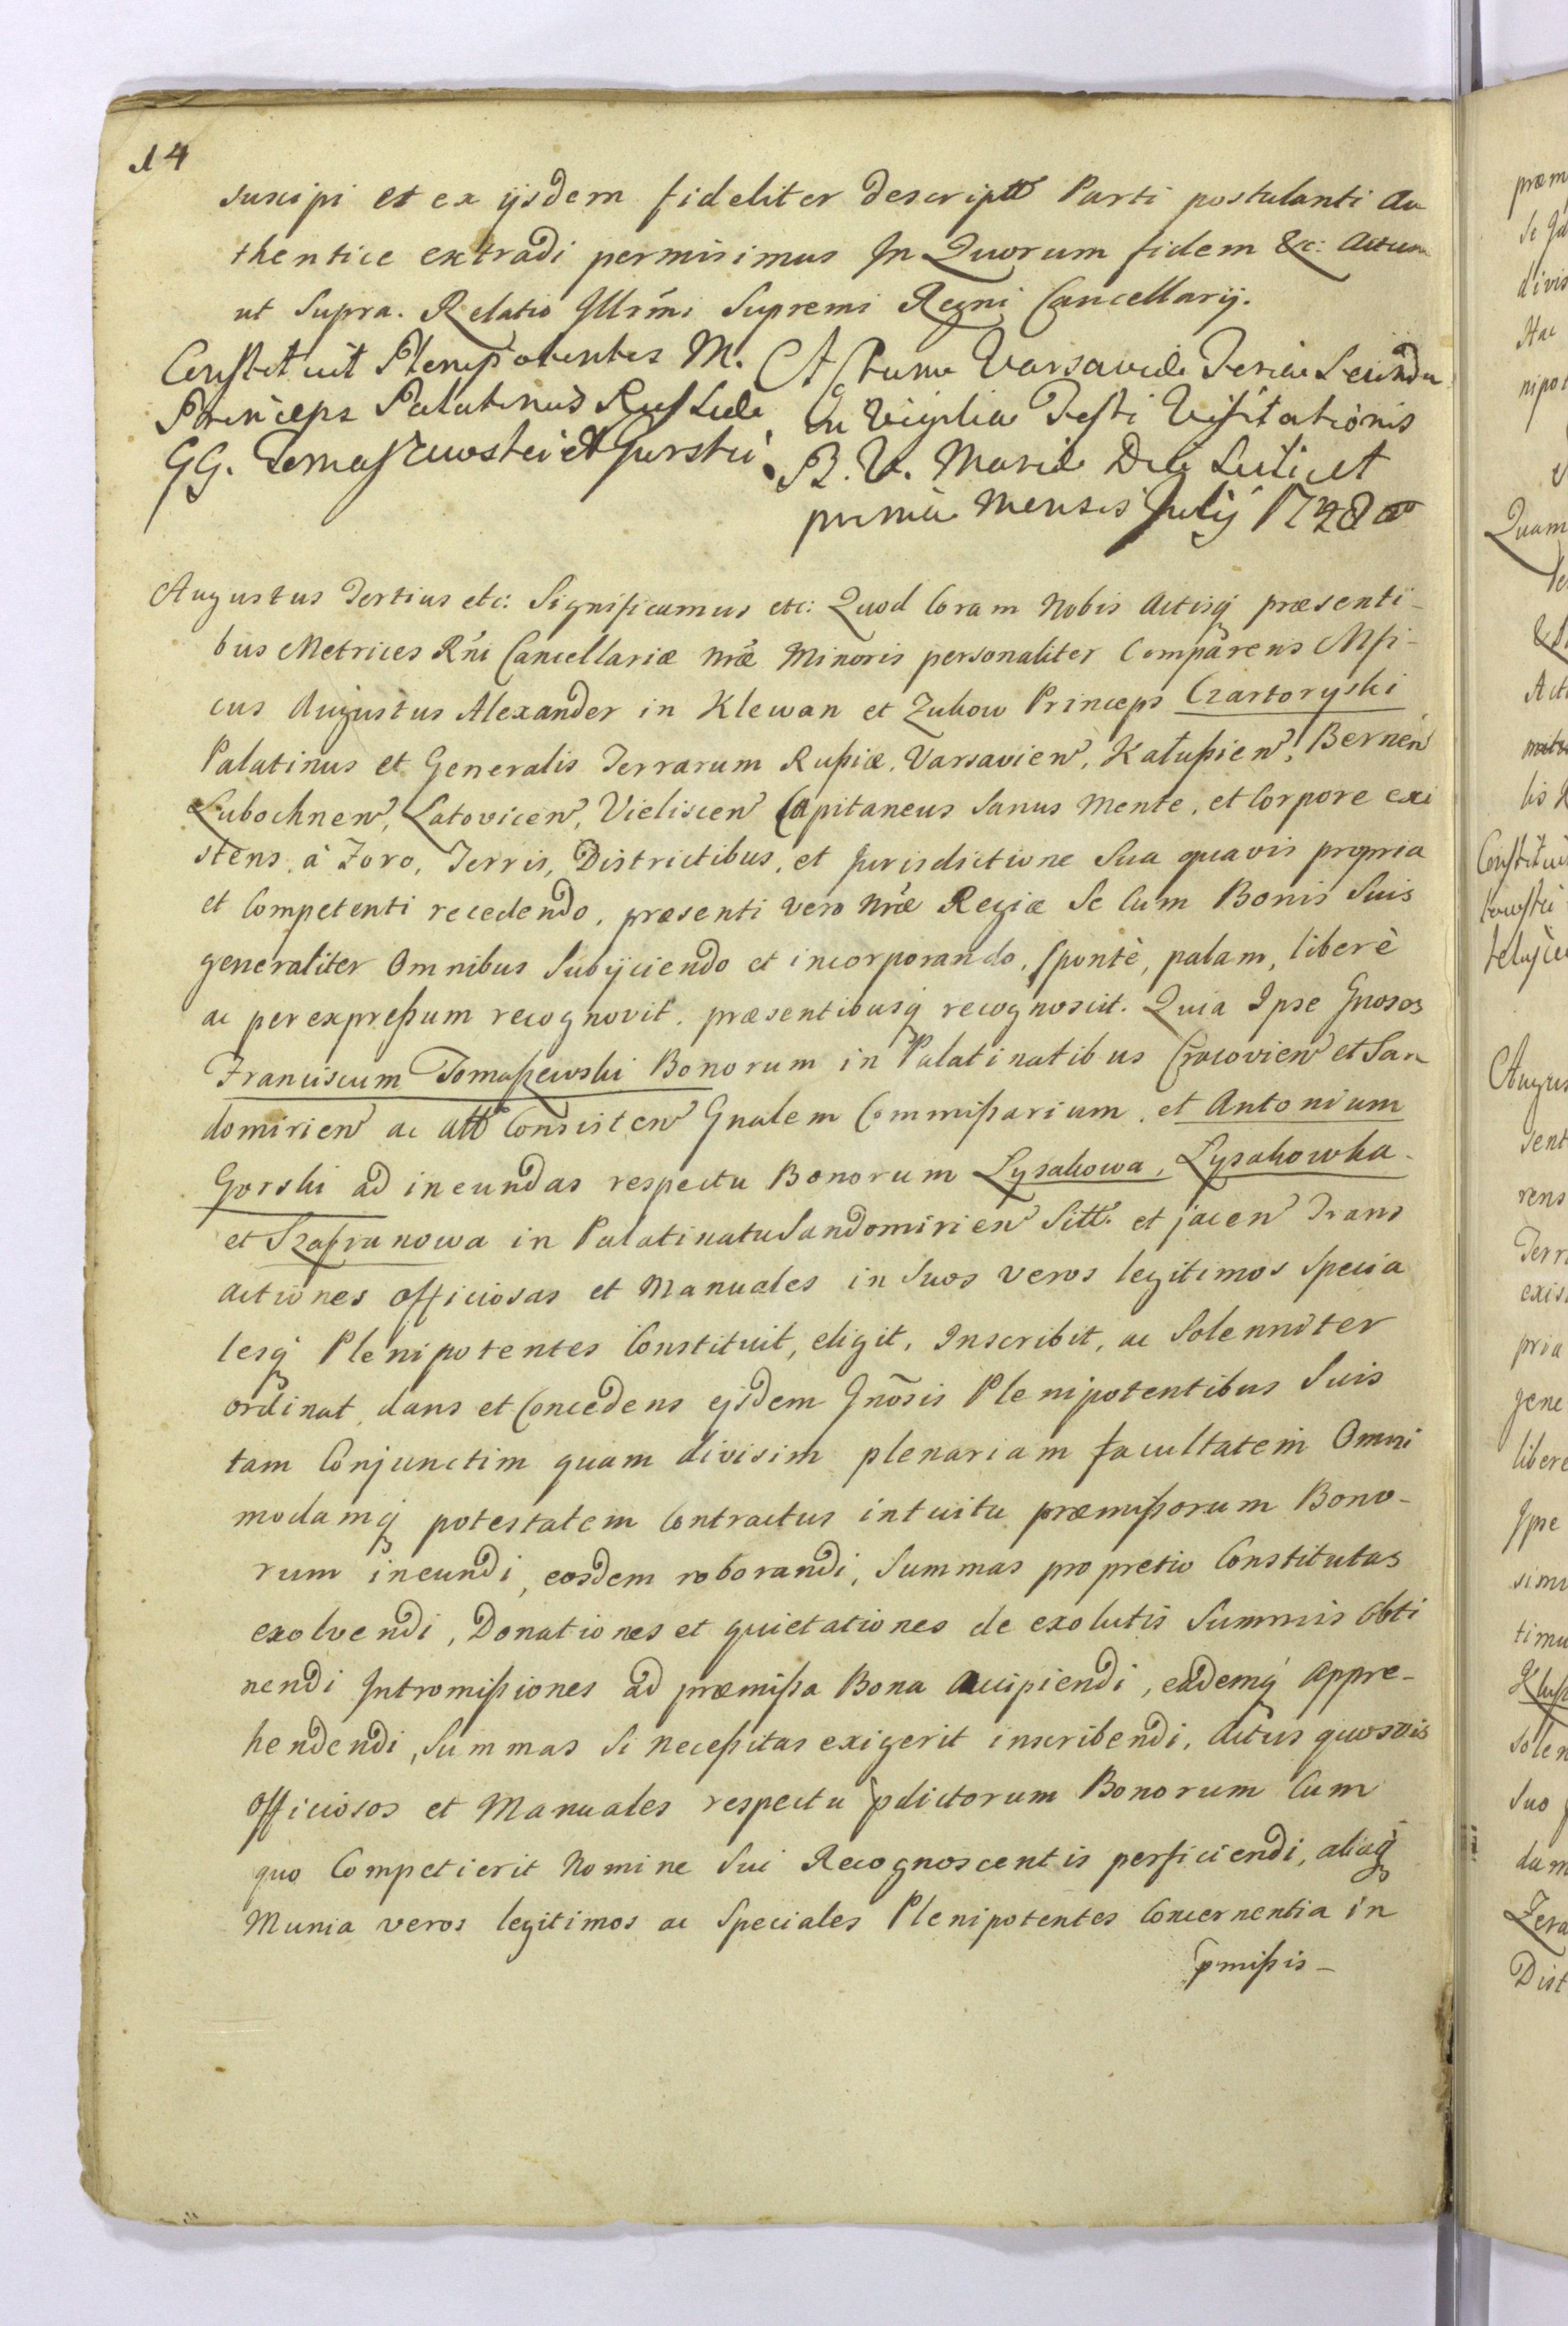 14
suscipi et ex ijsdem fideliter descriptt Parti postulanti Au
thentice extradi permisimus In Quorum fidem &c: Actum
ut Supra. Relatio Illrmi Supremi Regni Cancellarij.
Constituit Plenipotentes M.
Princeps Palatinus Russiæ
GG. Tomaszewski et Gorski.
Actum Varsaviæ Feria Secunda
In Vigilia Festi Visitationis
B. V. Mariæ Die Scilicet
prima Mensis Julij 1748 ao
Augustus Tertius etc: Significamus etc: Quod Coram Nobis Actisq præsenti-
bus Metrices Rni Cancellariæ nræ Minoris personaliter Comparens Mfi-
cus Augustus Alexander in Klewan et Zukow Princeps Czartoryski
Palatinus et Generalis Terrarum Russiæ, Varsavien, Kałussien, Bernen
Lubochnen, Latovicen, Vieliscen Capitaneus Sanus Mente, et Corpore exi
stens, à Foro, Terris, Districtibus, et Jurisdictione Sua quavis propria
et Competenti recedendo, præsenti vero nræ Regiæ Se Cum Bonis Suis
generaliter Omnibus Subijciendo et incorporando, sponte, palam, liberè
ac per expressum recognovit, præsentibusq recognoscit. Quia Ipse Gnosos
Franciscum Tomaszewski Bonorum in Palatinatibus Cracovien et San
domirien ac att Consisten Gnalem Commissarium, et Antonium
Gorski ad ineundas respectu Bonorum Lysakowa, Lysakowka
et Szafranowa in Palatinatu Sandomirien Sitt. et jacen Trans
actiones officiosas et Manuales in Suos veros legitimos Specia
lesq Plenipotentes Constituit, eligit, Inscribit, ac Solenniter
ordinat, dans et Concedens ejsdem Gnosis Plenipotentibus Suis
tam Conjunctim quam divisim plenariam facultatem Omni
modamq potestatem Contractus intuitu præmissorum Bono-
rum ineundi, eosdem roborandi, Summas pro pretio Constitutas
exolvendi, Donationes et quietationes de exolutis Summis Obti
nendi Intromissiones ad præmissa Bona Accipiendi, eademq Appre-
hendendi, Summas Si necessitas exigerit inscribendi, Actus quosvis
Officiosos et Manuales respectu pdictorum Bonorum Cum
quo Competierit Nomine Sui Recognoscentis perficiendi, aliaq
Munia veros legitimos ac Speciales Plenipotentes Concernentia in
pmissis-